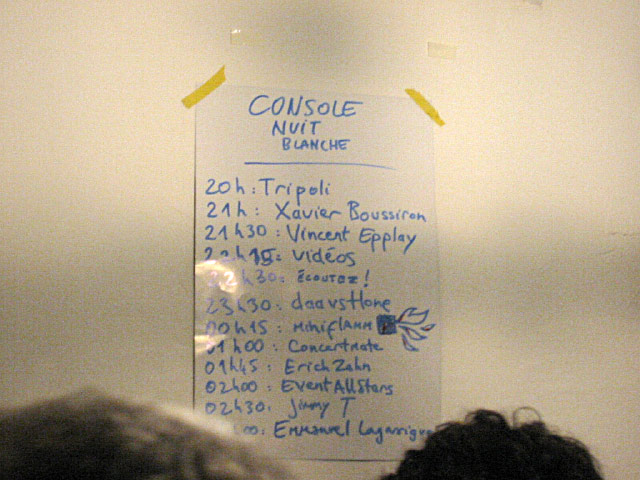 CONSOLE
NUIT
BLANCHE
20h: Tripoli
21h: Xavier Boussiron
21h30: Vincent Epplay
22h15: vidéos
22h30: ÉCOUTEZ!
23h30: daavsHone
00h15: MiniflAMM
01h00: Concertmate
01h45: Erich Zahn
02h00: EventAllStars
02h30: Jimmy T
00: Emmanuel